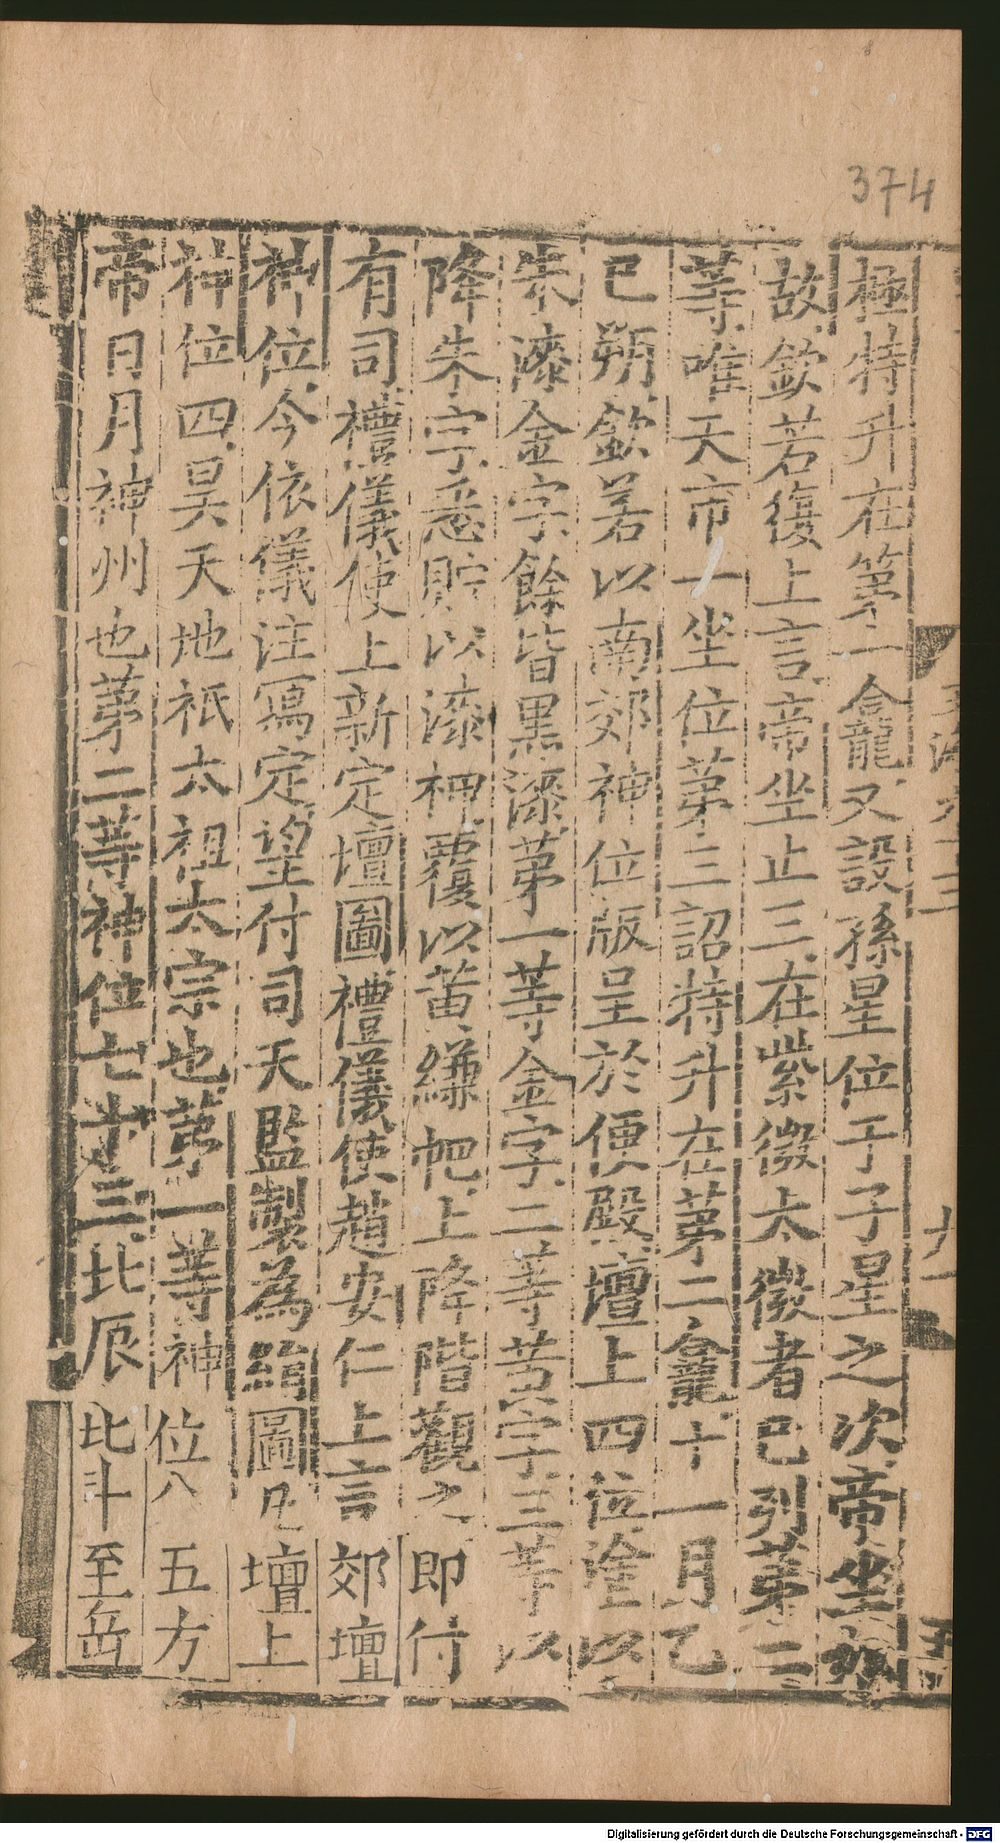 374
極特升在第一龕又設孫星位于子星之次帝坐如
故欽若復上言帝坐止三在紫微太微者已列第二
等唯天市一坐位第三詔特升在第二龕十一月乙
巳朔欽若以南郊神位版呈於便殿壇上四位塗以
朱漆金字餘皆黑漆第一等金字二等黃字三等以
降朱字悉貯以漆柙覆以黃縑帊上降階觀之即付
有司禮儀使上新定壇圖禮儀使趙安仁上言郊壇
神位今依儀注寫定望付司天監製為絹圖凡壇上
神位四昊天地祇太祖太宗也第一等神位八五方
帝日月神州也第二等神位七十三北辰北斗至岳
Digitalisierung gefördert durch die Deutsche Forschungsgemeinschaft - DFG